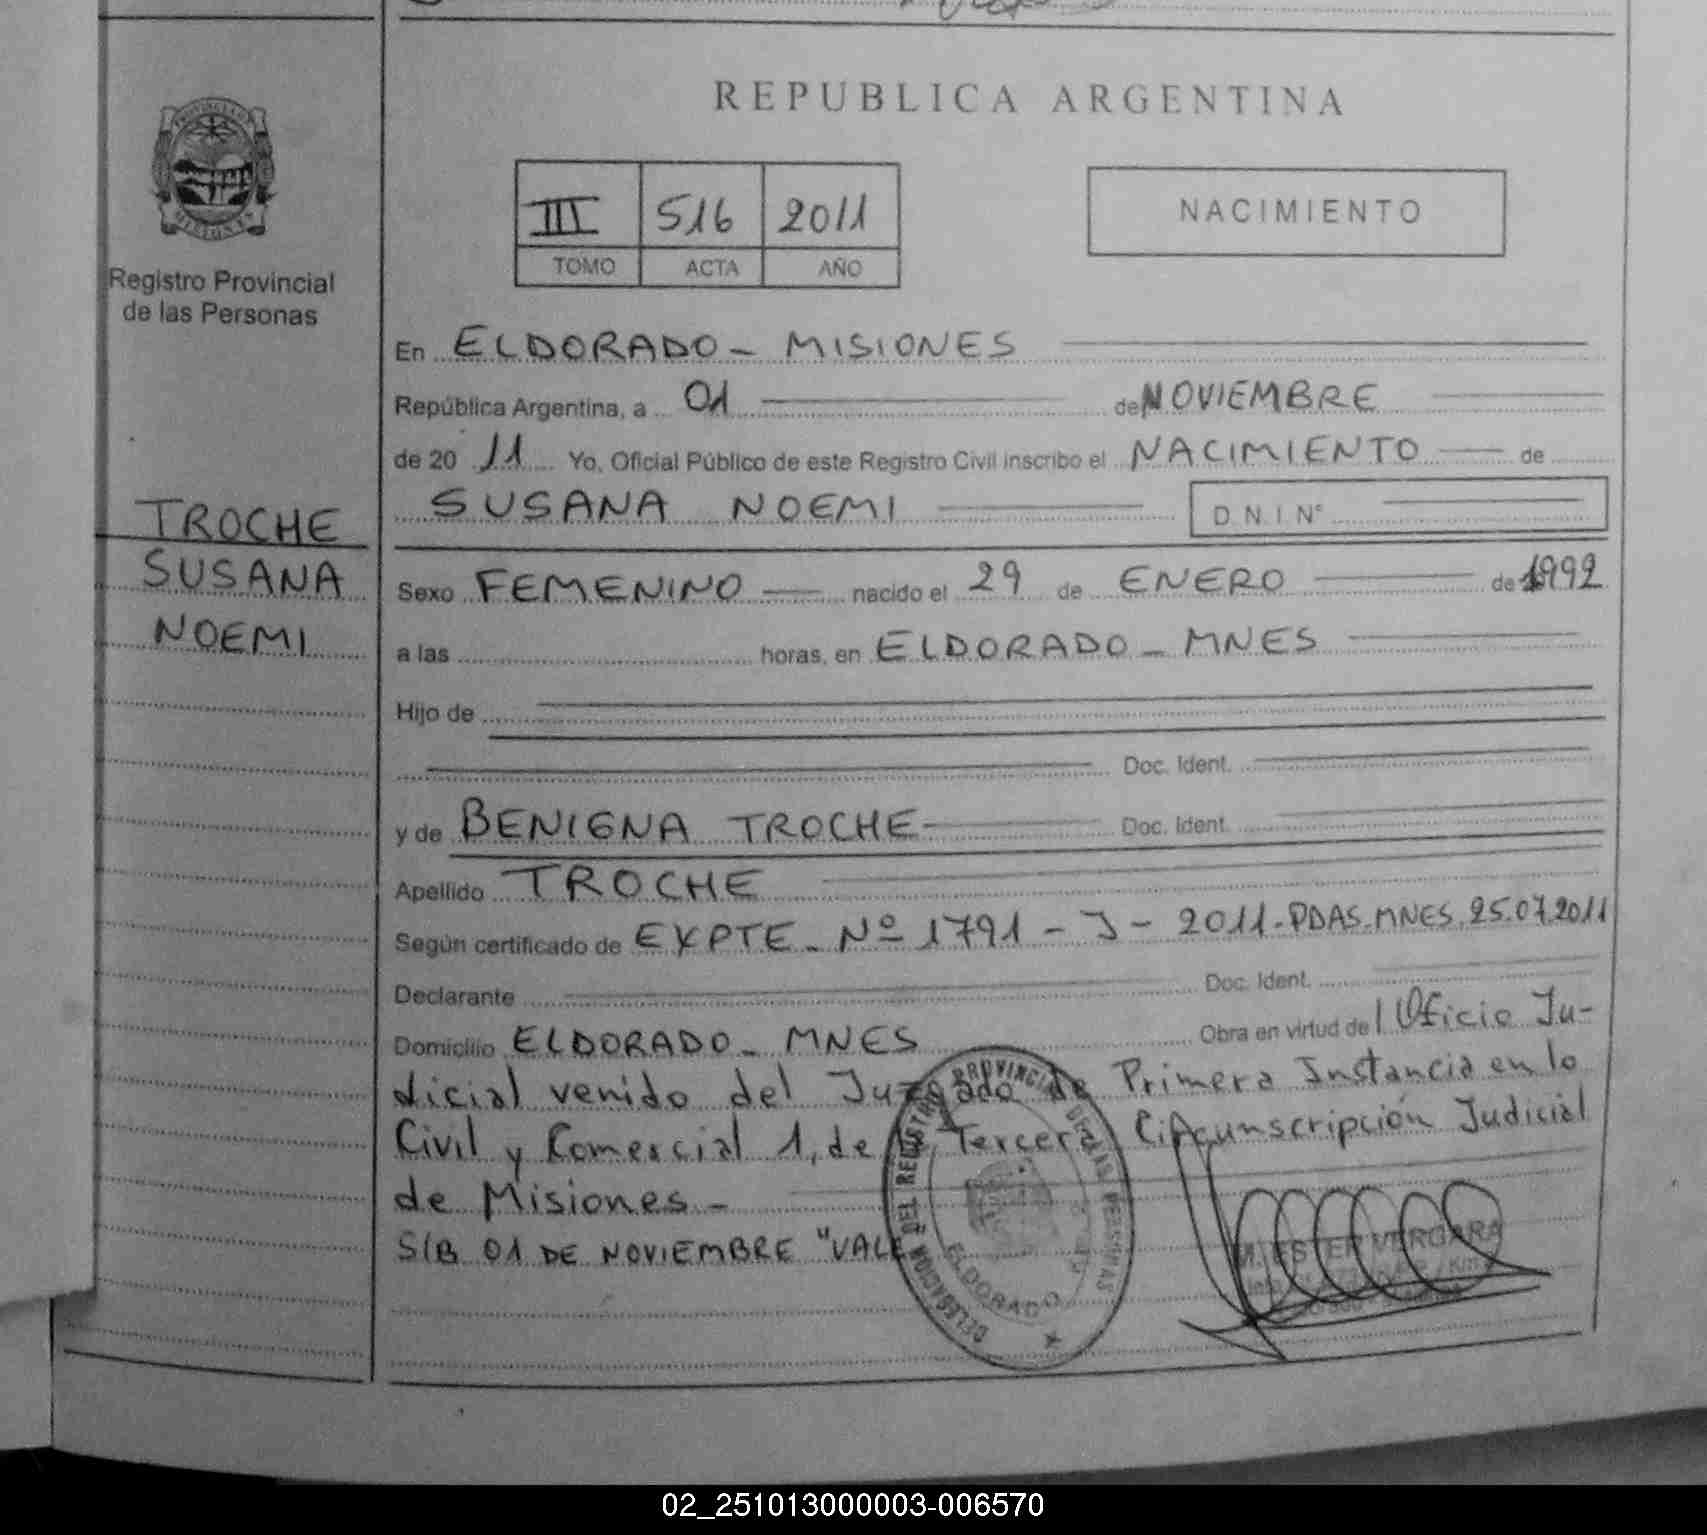 REPUBLICA ARGENTINA
PROVINCIA DE
MISIONES
Registro Provincial
de las Personas
III 516 2011
TOMO ACTA AÑO
NACIMIENTO
En ELDORADO - MISIONES
República Argentina, a 01 de NOVIEMBRE
de 20 11 Yo, Oficial Público de este Registro Civil inscribo el NACIMIENTO de
SUSANA NOEMI D.N.I. Nº
TROCHE
SUSANA
NOEMI
Sexo FEMENINO nacido el 29 de ENERO de 1992
a las horas, en ELDORADO - MNES
Hijo de
Doc. Ident.
y de BENIGNA TROCHE Doc. Ident.
Apellido TROCHE
Según certificado de EXPTE - Nº 1791 - J - 2011 - PDAS. MNES. 25.07.2011
Declarante Doc. Ident.
Domicilio ELDORADO - MNES Obra en virtud de Oficio Ju-
dicial venido del Juzgado de Primera Instancia en lo
Civil y Comercial 1, de la Tercera Circunscripción Judicial
de Misiones -
S/B 01 DE NOVIEMBRE "VALE"
DELEGACION DEL REGISTRO PROVINCIAL DE LAS PERSONAS
ELDORADO
M. ESTER VERGARA
02_251013000003-006570